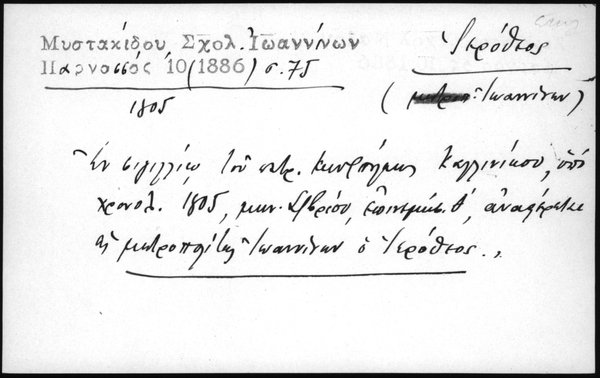 Μυστακίδου Σχολ. Ἰωαννίνων
Παρνασσός 10 (1886) σ. 75
1805
Ἱερόθεος
( Ἰωαννίνων)
Ἐν σιγιλλίῳ τοῦ πατρ. Κων/πόλεως Καλλινίκου, ὑπὸ
χρονολ. 1805, μην. 8/βρίου, ἐπινεμήσ. θ', ἀναφέρεται
ὡς μητροπολίτης Ἰωαννίνων ὁ Ἱερόθεος.